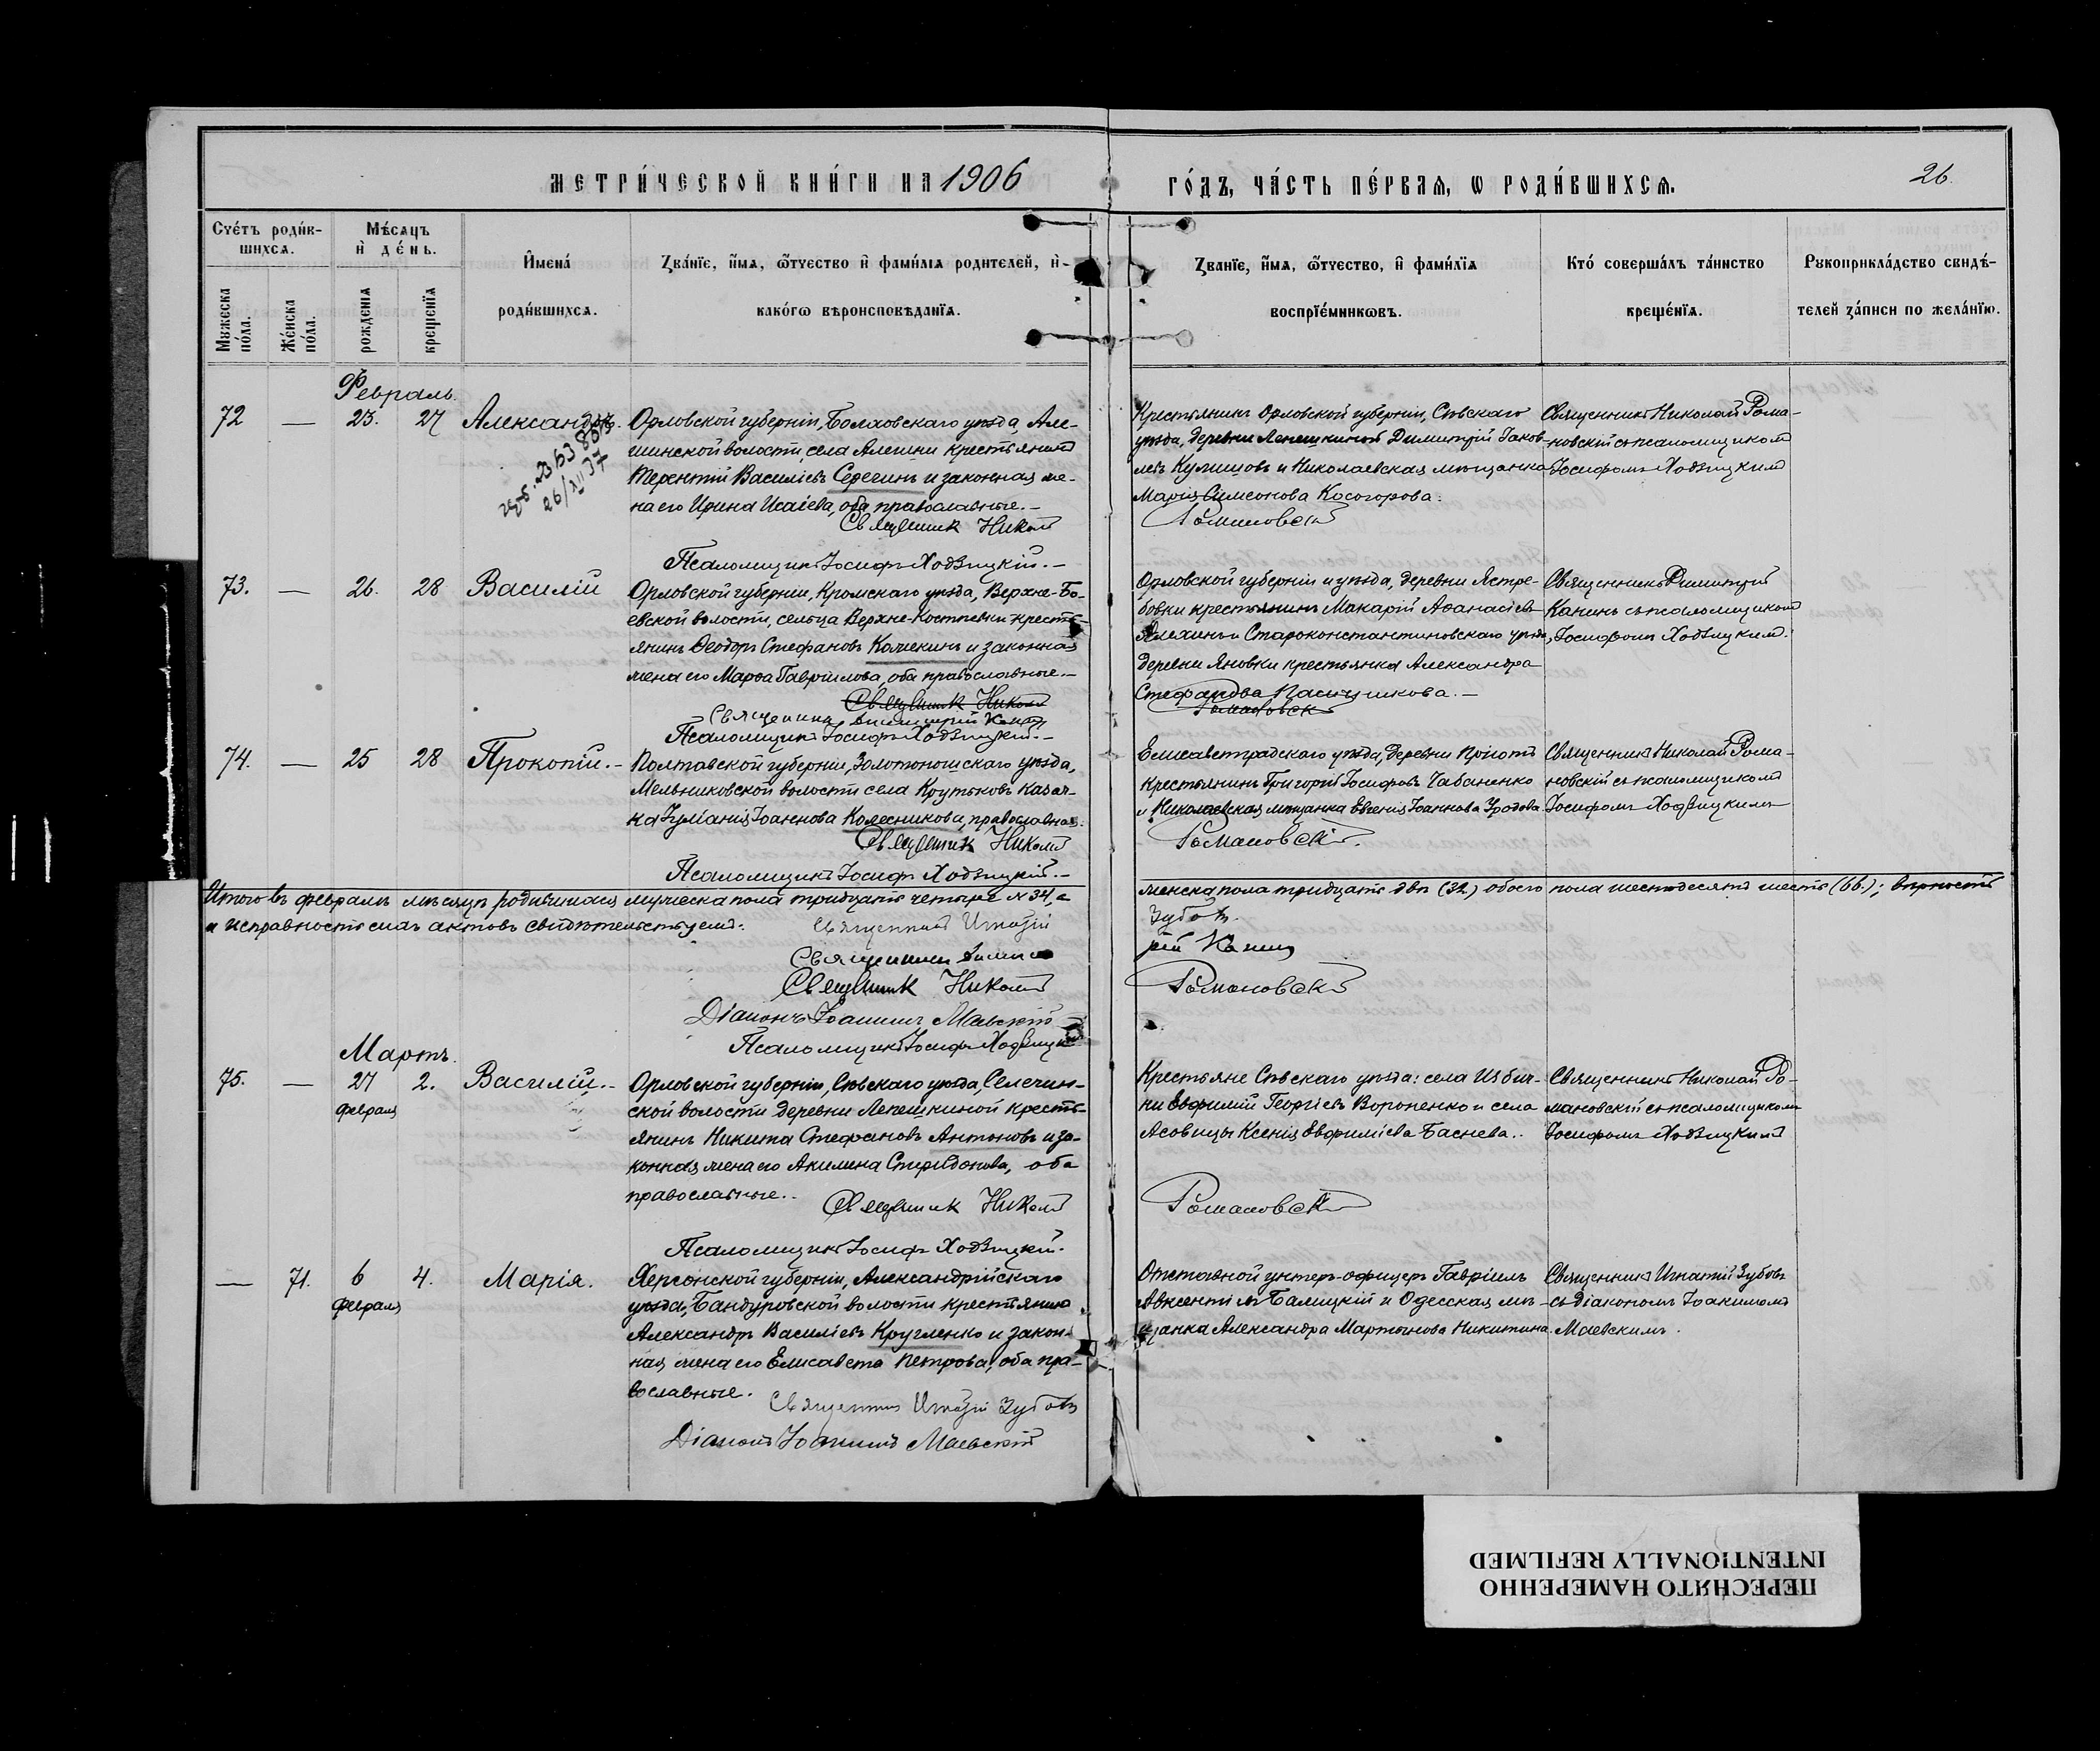 МЕТРИ́ЧЕСКОЙ КНИ́ГИ НА 1906
ГО́ДЪ, ЧА́СТЬ ПЕ́РВАЯ, Ѡ РОДИ́ВШИХСЯ.
26.
Счетъ роди́в-
шихся.
Мужеска по́ла.
Же́нска по́ла.
Мѣ́сяцъ
и де́нь.
рожденія
крещенія
Имена́
роди́вшихся.
Зва́ніе, имя, отчество и фами́лія родителей, и
како́гѡ вѣроисповѣданія.
Званіе, имя, отчество, и фами́лія
воспріе́мниковъ.
Кто́ соверша́лъ та́инство
креще́нія.
Рукоприкла́дство свидѣ́-
телей за́писи по жела́нію.
Февраль.
72 — 23. 27 Александръ.
26/XII 37
Орловской губерніи, Болховскаго уѣзда, Але-
шинской волости, села Алешни крестьянинъ
Терентій Василіевъ Серегинъ и законная же-
на его Ирина Исаіева, оба православные. —
Священникъ Николай
Псаломщикъ Іосифъ Ходзицкій. —
Крестьянинъ Орловской губерніи, Сѣвскаго
уѣзда, деревни Лепешкиной Димитрій Іаков-
левъ Кулишовъ и Николаевская мѣщанка
Марія Симеонова Косогорова.
Романовскій
Священникъ Николай Рома-
новскій съ псаломщикомъ
Іосифомъ Ходзицкимъ
73. — 26. 28 Василій
Орловской губерніи, Кромскаго уѣзда, Верхне-Бо-
евской волости, сельца Верхне-Костѣевки кресть-
янинъ Ѳеодоръ Стефановъ Колчекинъ и законная
жена его Марѳа Гавріилова, оба православные. —
Священникъ Николай
Священникъ Димитрій Канинъ
Псаломщикъ Іосифъ Ходзицкій. —
Орловской губерніи и уѣзда, деревни Ястре-
бовки крестьянинъ Макарій Аѳанасіевъ
Алехинъ и Староконстантиновскаго уѣзда,
деревни Яновки крестьянка Александра
Стефанова —
Романовскій
Священникъ Димитрій
Канинъ съ псаломщикомъ
Іосифомъ Ходзицкимъ.
74. — 25 28 Прокопій. —
Полтавской губерніи, Золотоношскаго уѣзда,
Мельниковской волости села Крутьковъ казач-
ка Іуліанія Іоаннова Колесникова, православная.
Священникъ Николай
Псаломщикъ Іосифъ Ходзицкій. —
Елисаветградскаго уѣзда, деревни
крестьянинъ Григорій Іосифовъ Чабаненко
и Николаевская мѣщанка Евгенія Іоаннова
Романовскій.
Священникъ Николай Рома-
новскій съ псаломщикомъ
Іосифомъ Ходзицкимъ
Итого въ февралѣ мѣсяцѣ родившихся мужеска пола тридцать четыре № 34, а
женска пола тридцать два (32) обоего пола шестьдесятъ шесть (66.); вѣрность
и исправность сихъ актовъ свидѣтельствуемъ:
Священникъ Игнатій
Зубовъ.
Священникъ Димит
рій Канинъ
Священникъ Николай
Романовскій
Діаконъ Іоакимъ Маевскій
Псаломщикъ Іосифъ Ходзицкій
Мартъ.
75. — 27 2. Василій. —
февраля
Орловской губерніи, Сѣвскаго уѣзда, Селечин-
ской волости деревни Лепешкиной кресть-
янинъ Никита Стефановъ Антоновъ и за-
конная жена его Акилина Спиридонова, оба
православные.
Священникъ Николай
Псаломщикъ Іосифъ Ходзицкій.
Крестьяне Сѣвскаго уѣзда: села Избич-
ни Евфимій Георгіевъ Вороненко и села
Асовицы Ксенія Евфиміева Баснева.
Романовскій
Священникъ Николай Ро-
мановскій съ псаломщикомъ
Іосифомъ Ходзицкимъ
— 71. 6 4. Марія.
февраля
Херсонской губерніи, Александрійскаго
уѣзда, Бандуровской волости крестьянинъ
Александръ Василіевъ Кругленко и закон-
ная жена его Елисавета Петрова, оба пра-
вославные.
Священникъ Игнатій Зубовъ
Діаконъ Іоакимъ Маевскій
Отставной унтеръ-офицеръ Гавріилъ
Авксентіевъ Балицкій и Одесская мѣ-
щанка Александра Мартынова Никитина.
Священникъ Игнатій Зубовъ
съ діакономъ Іоакимомъ
Маевскимъ.
ПЕРЕСНЯТО НАМЕРЕННО
INTENTIONALLY REFILMED